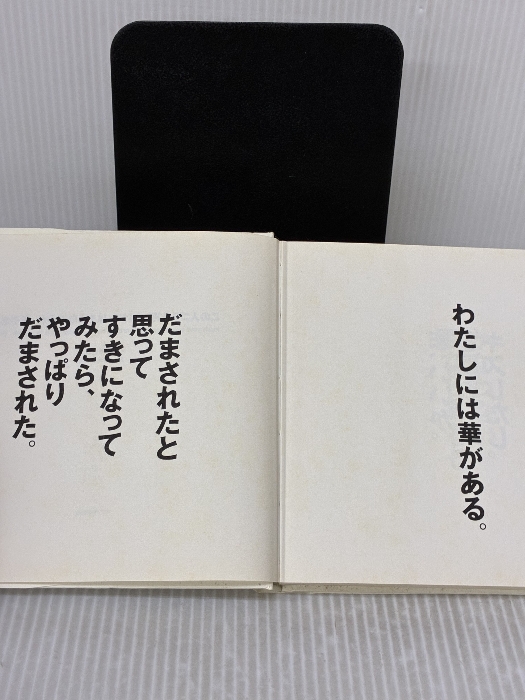 わたしには華がある。
だまされたと
思って
すきになって
みたら、
やっぱり
だまされた。